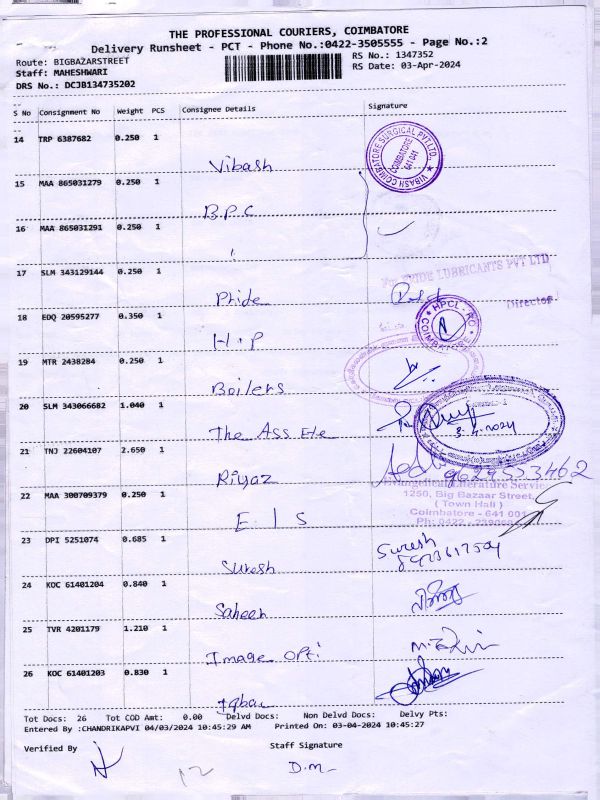 THE PROFESSIONAL COURIERS, COIMBATORE
Delivery Runsheet - PCT - Phone No.:0422-3505555 - Page No.:2
Route: BIGBAZARSTREET
RS No.: 1347352
Staff: MAHESHWARI
RS Date: 03-Apr-2024
DRS No.: DCJB134735202
S No Consignment No Weight PCS Consignee Details Signature
14 TRP 6387682 0.250 1
VIBASH COIMBATORE SURGICAL PVT LTD.,
COIMBATORE
641 041
Vibash
15 MAA 865031279 0.250 1
B.P.C
16 MAA 865031291 0.250 1
17 SLM 343129144 0.250 1
For PRIDE LUBRICANTS PVT LTD
Pride
Director
18 EDQ 20595277 0.350 1
HPCL - RO
COIMBATORE
H.P
19 MTR 2438284 0.250 1
Boilers
20 SLM 343066682 1.040 1
3.4.2024
The Ass Ele
21 TNJ 22604107 2.650 1
Riyaz
Evangelical Literature Service
22 MAA 300709379 0.250 1
1250, Big Bazaar Street,
( Town Hall )
Coimbatore - 641 001
E I S
23 DPI 5251074 0.685 1
Suresh
Suresh
24 KOC 61401204 0.840 1
Saheen
25 TVR 4201179 1.210 1
Image Opti
26 KOC 61401203 0.830 1
Iqbal
Tot Docs: 26 Tot COD Amt: 0.00 Delvd Docs: Non Delvd Docs: Delvy Pts:
Entered By :CHANDRIKAPVI 04/03/2024 10:45:29 AM Printed On: 03-04-2024 10:45:27
Verified By Staff Signature
D.M
12